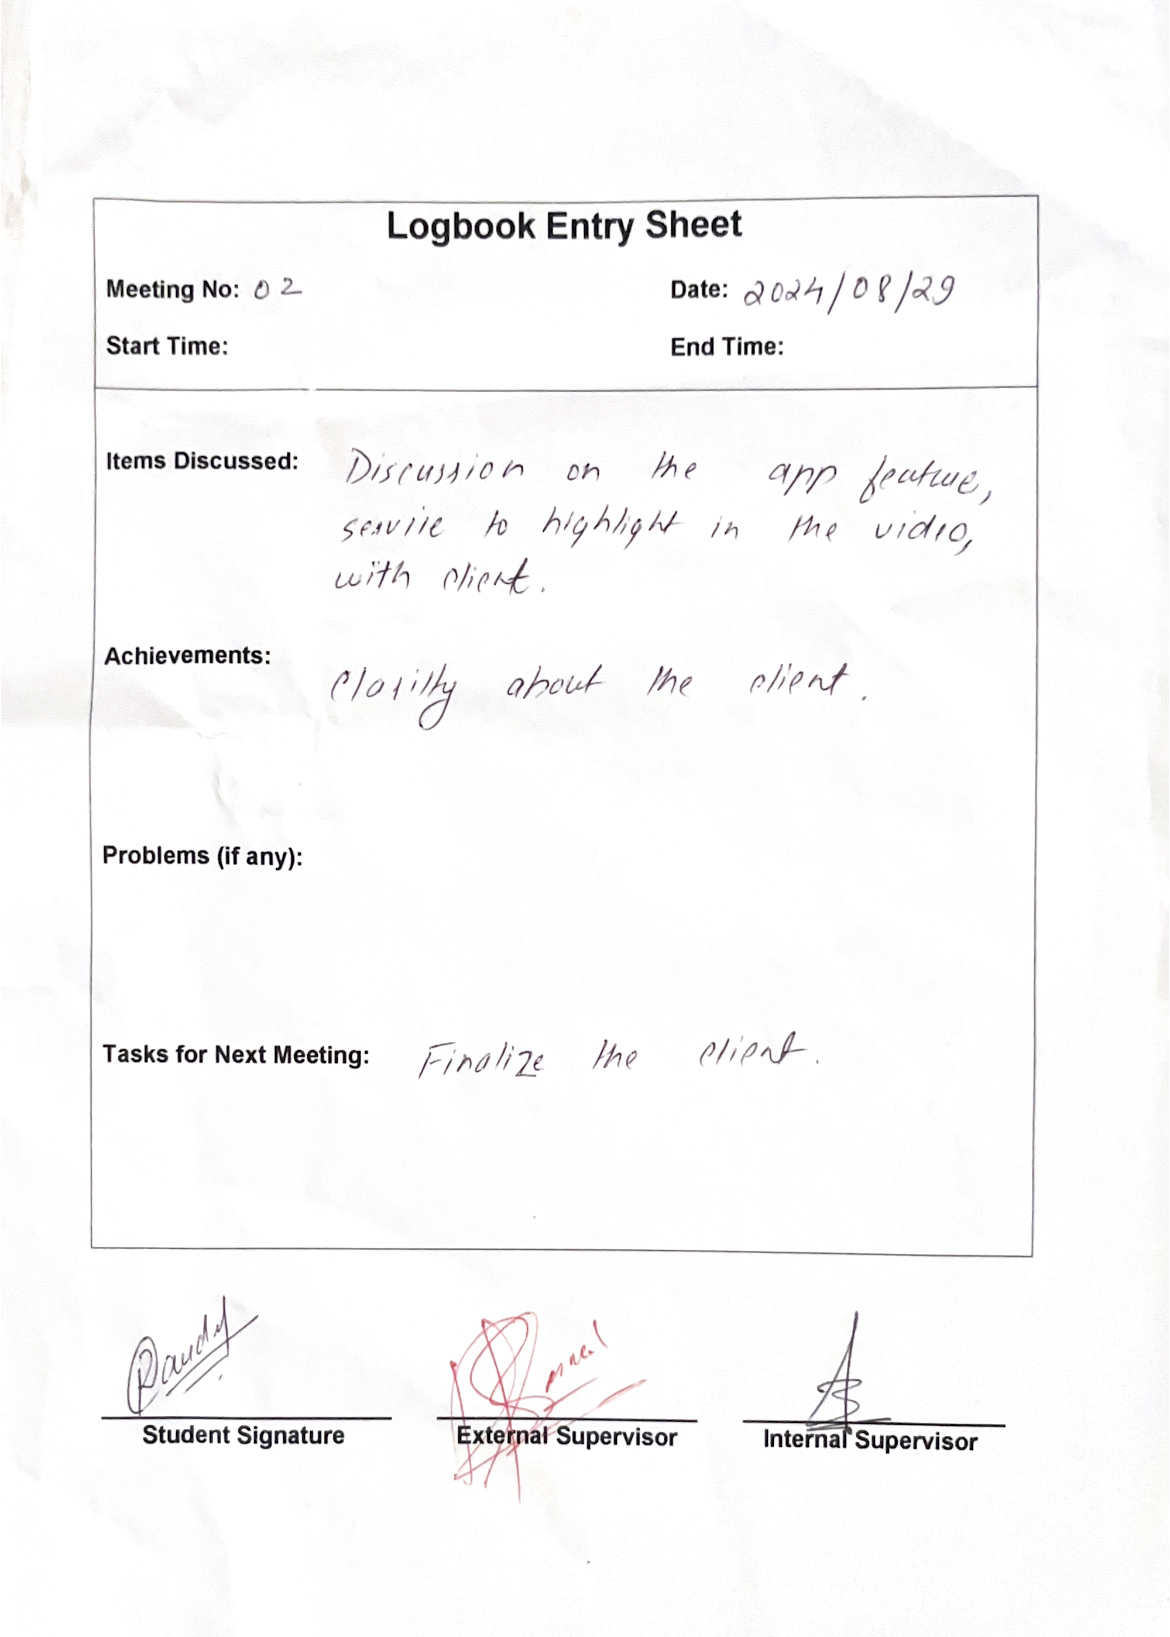 Logbook Entry Sheet
Meeting No: 02
Date: 2024/08/29
Start Time:
End Time:
Items Discussed: Discussion on the app feature,
service to highlight in the video,
with client.
Achievements:
Clarilty about the client.
Problems (if any):
Tasks for Next Meeting: Finalize the client.
Student Signature
External Supervisor
Internal Supervisor